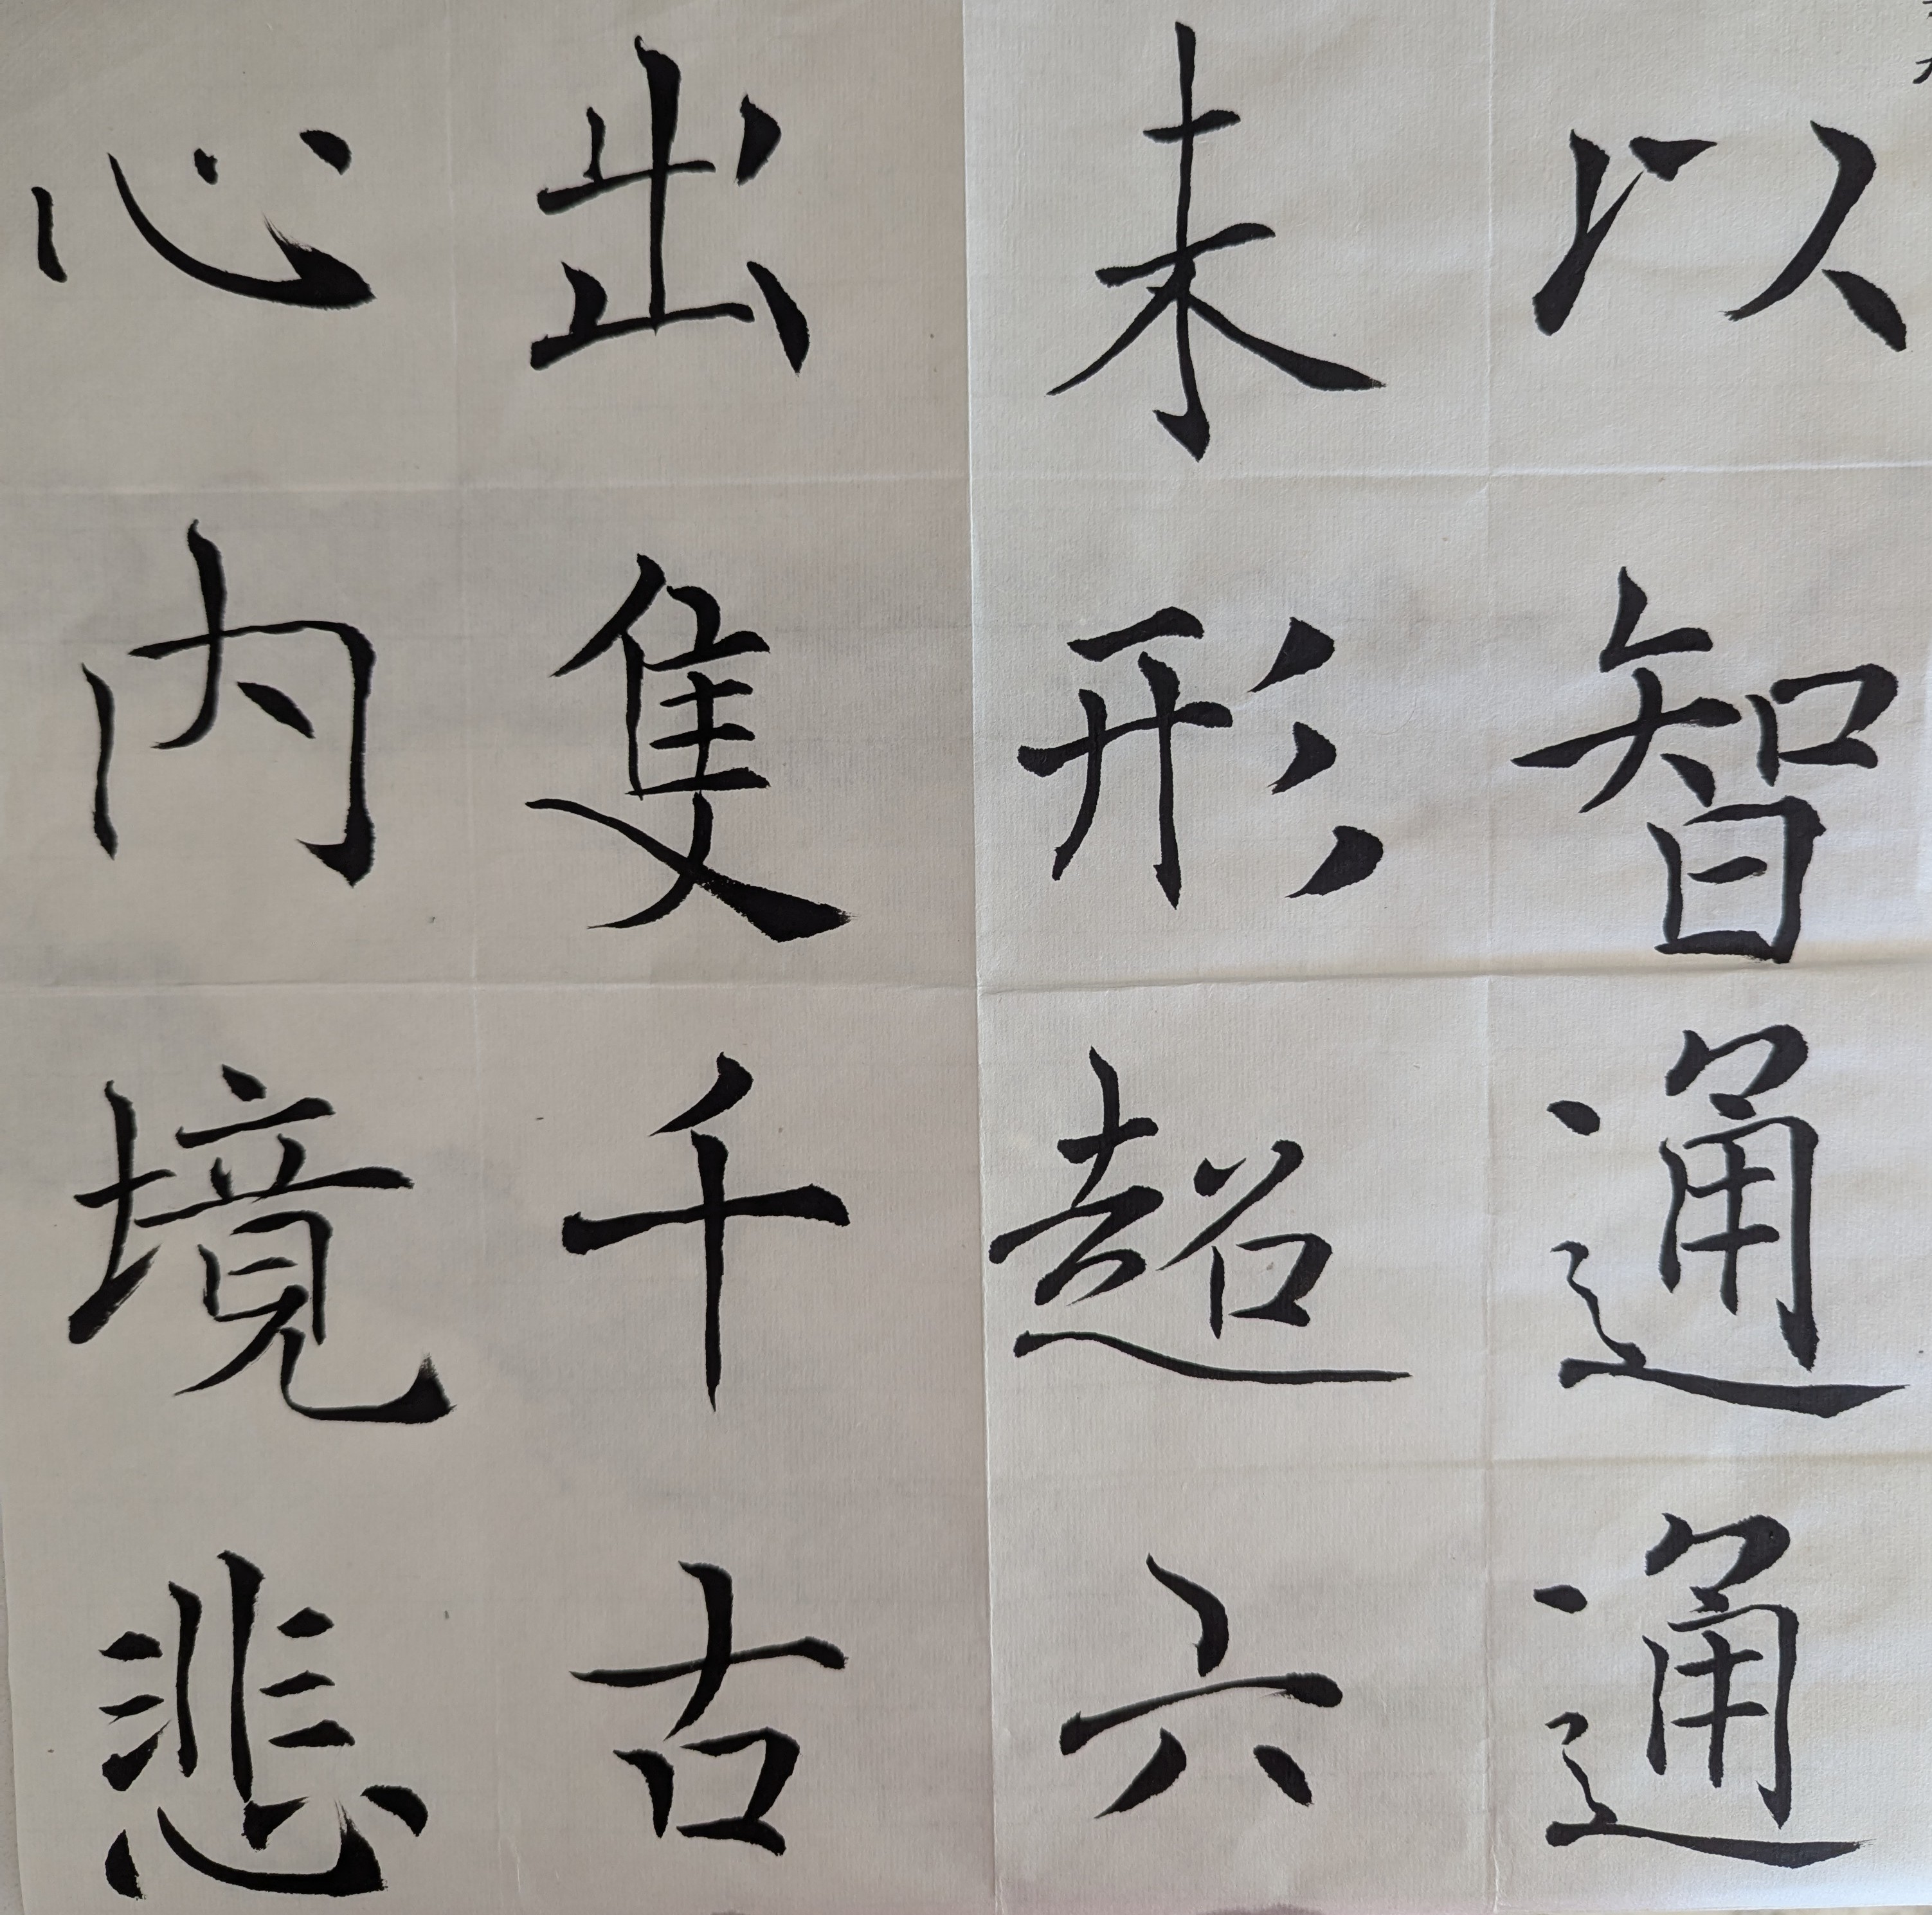 以智通通
未形超六
出隻千古
心内境悲